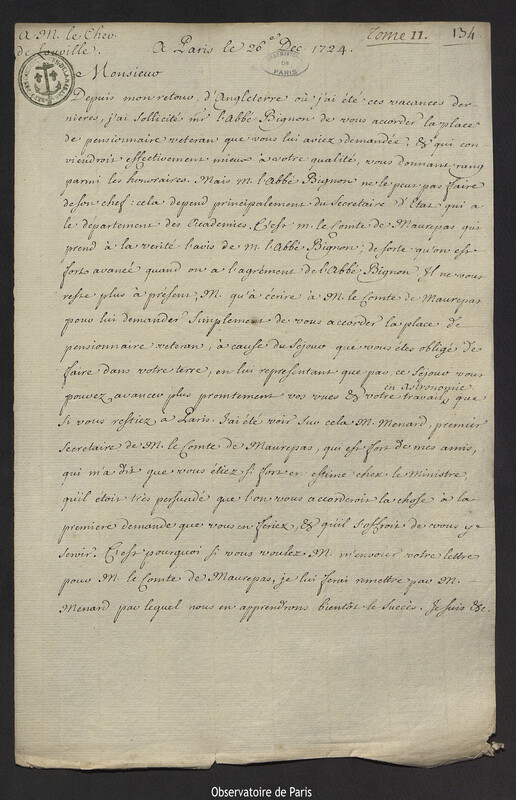 A M. le Chev.
de Louville.
A Paris le 26.e Dec. 1724.
Tome II.
134
OBSERVATOIRE
DE
PARIS
Monsieur
Depuis mon retour d'Angleterre où j'ai été ces vacances der-
nieres, j'ai sollicité mr l'Abbé Bignon de vous accorder la place
de pensionnaire veteran que vous lui aviez demandée, & qui con
viendroit effectivement mieux à votre qualité, vous donnant rang
parmi les honoraires. Mais M. l'Abbé Bignon ne le peut pas faire
de son chef: cela depend principalement du Secretaire d'Etat qui a
le département des Academies. C'est m. le Comte de Maurepas qui
prend à la verité l'avis de M. l'Abbé Bignon; de sorte qu'on est
fort avancé quand on a l'agrément de l'Abbé Bignon. Il ne vous
reste plus à présent, M. qu'à écrire à M. le Comte de Maurepas
pour lui demander simplement de vous accorder la place de
pensionnaire veteran, à cause du Séjour que vous êtes obligé de
faire dans votre terre, en lui representant que par ce Séjour vous
pouvez avancer plus promtement vos vues & votre travail en Astronomie que
si vous restiez à Paris. J'ai été voir sur cela M. Menard, premier
Secretaire de M. le Comte de Maurepas, qui est fort de mes amis,
qui m'a dit que vous étiez si fort en estime chez le Ministre,
qu'il etoit très persuadé que l'on vous accorderoit la chose à la
premiere demande que vous en feriez, & qu'il s'offroit de vous y
servir. C'est pourquoi si vous voulez M. m'envoier votre lettre
pour M. le Comte de Maurepas, je lui ferai remettre par M.
Menard par lequel nous en apprendrons bientôt le succès. Je suis &c.
Observatoire de Paris